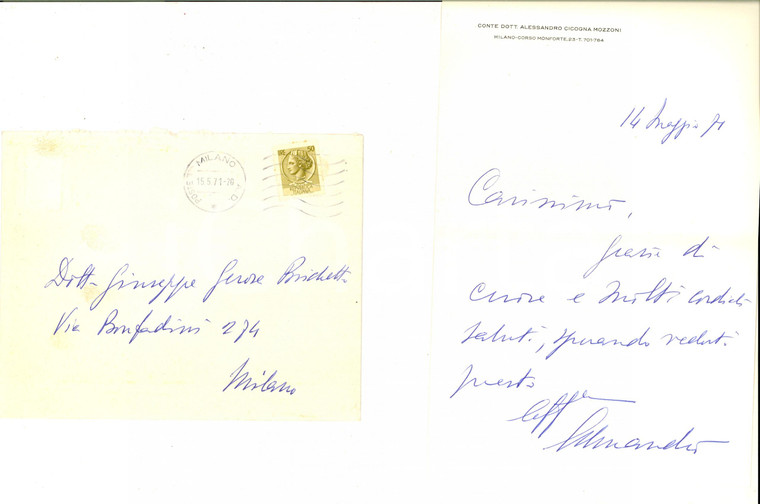 MILANO
15.5.71-20
50
Dott. Giuseppe Gerosa Brichetto
Via Bonfadini 274
Milano
CONTE DOTT. ALESSANDRO CICOGNA MOZZONI
MILANO-CORSO MONFORTE, 23-T. 701.784
14 Maggio 71
Carissimo,
grazie di
cuore e molti cordiali
saluti, sperando vederti
presto
aff
Alessandro